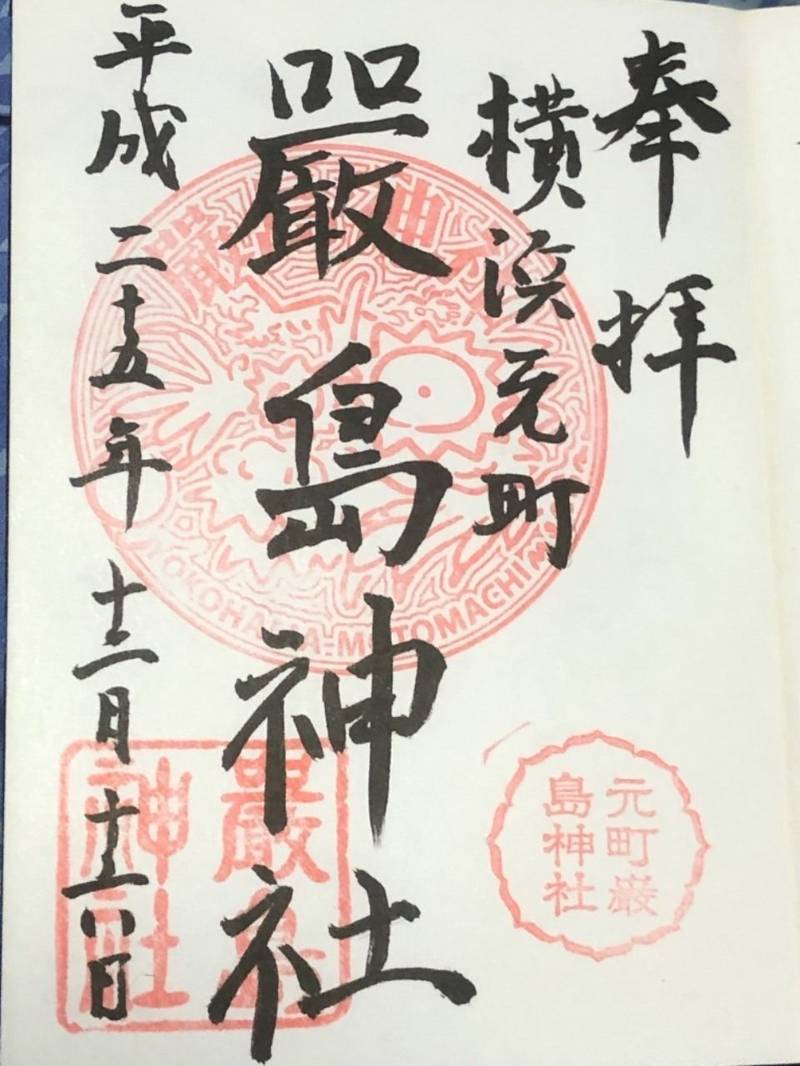 奉拝
横浜元町
嚴島神社
平成二十五年十二月十六日
嚴島神社
YOKOHAMA-MOTOMACHI
嚴島
神社
元町巌
島神社